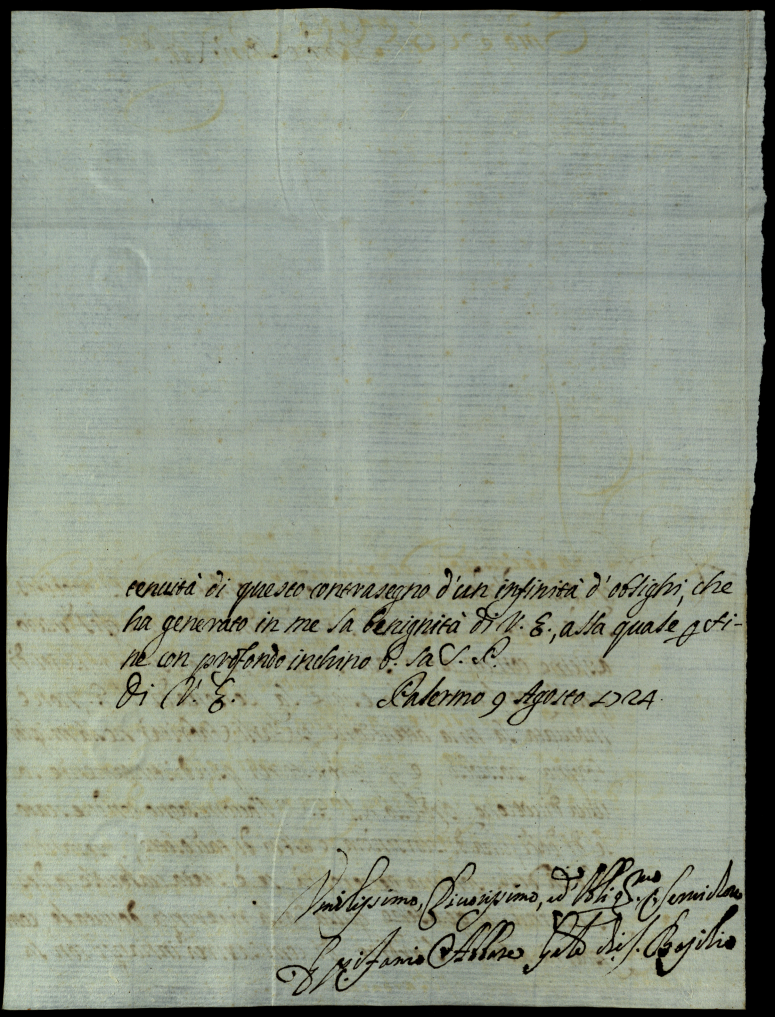 tenuità di questo contrasegno d'un infinità d'oblighi, che
ha generato in me la benignità di V. E., alla quale p fi-
ne con profondo inchino b. la S. P.
di V. E. Palermo 9 Agosto 1724
Umilissimo, Divotissimo, ed Obligmo Servidore
Epifanio Abbate Gele di S. Basilio